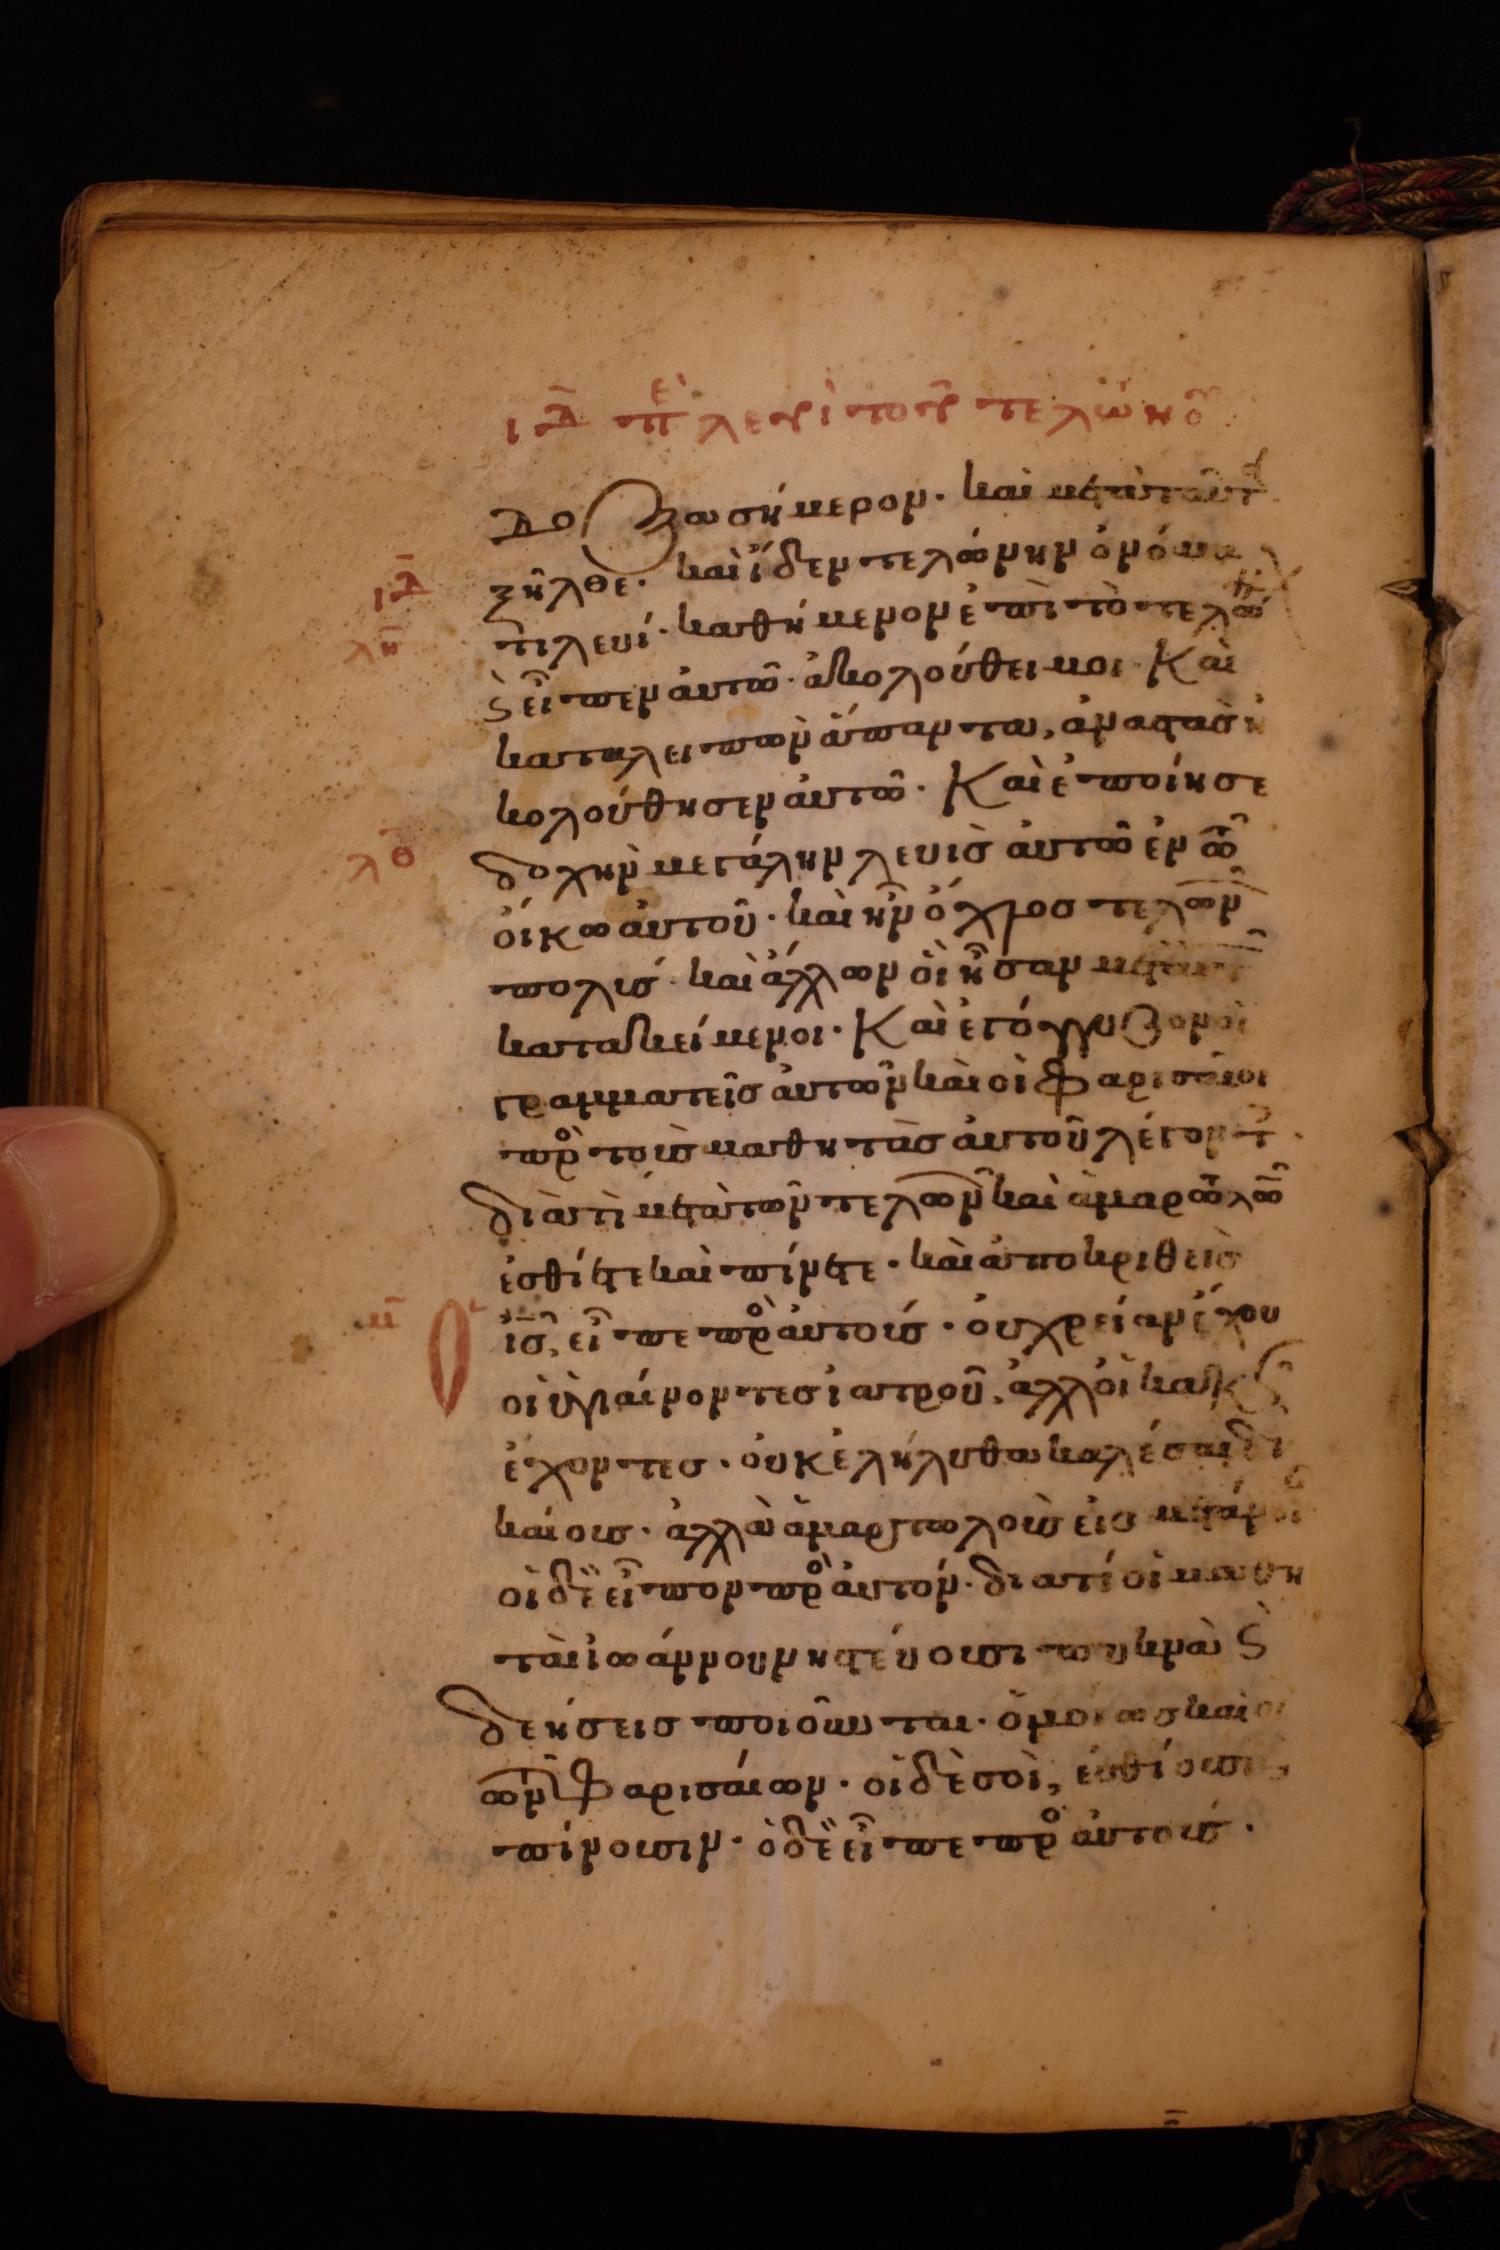 ιδ πε λευὶ τοῦ τελώνου
δοξα σήμερον. καὶ μετὰ ταῦτ ἐ
ξῆλθε. καὶ ἴδεν τελώνην ὀνόμα
ιδ
τι λευί. καθήμενον ἐπὶ τὸ τελώ
λη
ς εἶπεν ἀυτῶ. ἀκολούθει μοι. Καὶ
καταλειπὼν ἅπαντα, ἀναστὰς ἠ
κολούθησεν ἀυτῶ. Καὶ ἐποίησε
λθ
δοχὴν μεγάλην λευὶς ἀυτῶ ἐν τῶ
ὀίκω ἀυτοῦ. καὶ ἦν ὄχλος τελωνῶν
πολύς. καὶ ἄλλων ὁὶ ἦσαν μετ ἀυτ
κατακείμενοι. Καὶ ἐγόγγυζον οἱ
γραμματεῖς ἀυτῶν καὶ οἱ φαρισαίοι
πρὸ τοὺς μαθητὰς ἀυτοῦ λέγοντ.
διὰ τὶ μετὰ τῶν τελωνῶν καὶ ἁμαρτωλῶν
ἐσθίετε καὶ πίνετε. καὶ ἀποκριθεὶς
μ ο ις, εἶπε πρὸ ἀυτούς. ὀυ χρείαν ἔχου
οἱ ὑγιαίνοντες ἰατροῦ, ἀλλ ὁὶ κακῶς
ἔχοντες. ὀυκ ἐλήλυθα καλέσαι δι
καίους. ἀλλὰ ἁμαρτωλοὺς εἰς μετάνοι
οἱ δὲ εἶπον πρὸ ἀυτόν. διατί οἱ μαθη
ταὶ ἰωάννου νηστεύουσι πυκνὰ ς
δεήσεις ποιοῦνται. ὁμοίως καὶ οἱ
τῶν φαρισαίων. οἱ δὲ σοὶ, ἐσθίουσι ς
πίνουσιν. ὁ δὲ εἶπε πρὸ ἀυτούς.